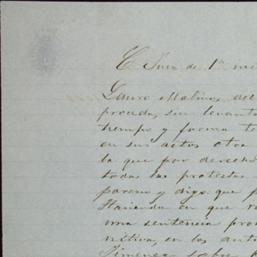 C. Juez de 1ª
Lauro Molina, del
proceda, su
tiempo y forma
en sus actos otra
la que por derecho
todas las protestas
parezco y digo que
Hacienda en que
una sentencia
nitiva, en los
Jimenez sobre